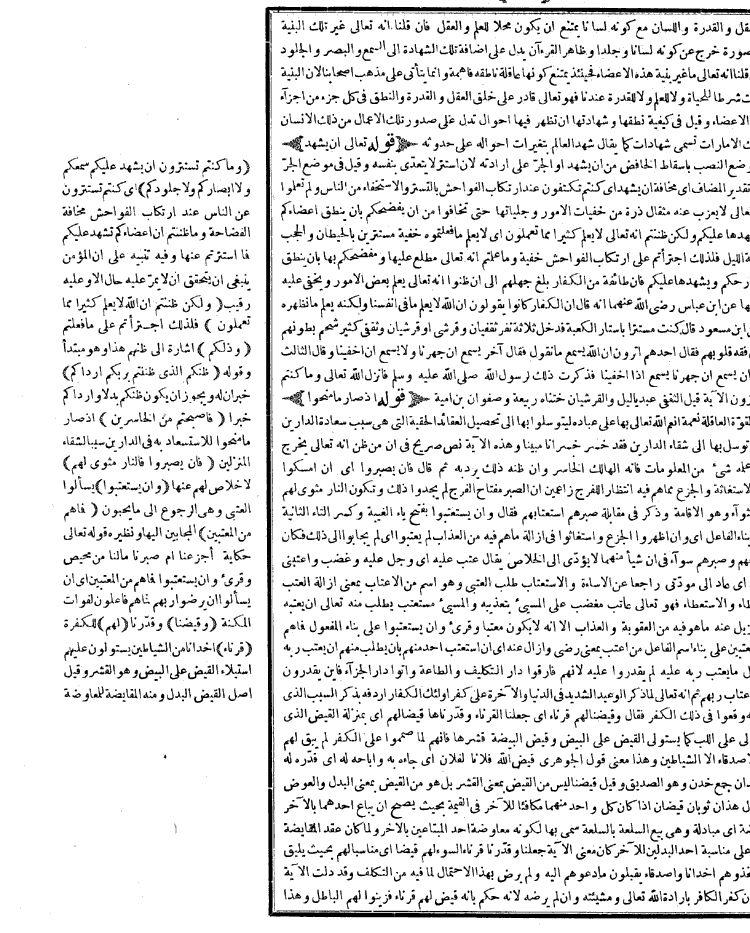 والقدرة واللسان مع كونه لسانا يمتنع ان يكون محلا للعلم والعقل فان قلنا انه تعالى غير تلك البنية
صورة خرج عن كونه لسانا وجلدا وظاهر القرءآن يدل على اضافة تلك الشهادة الى السمع والبصر والجلود
قلنا انه تعالى ما غير بنية هذه الاعضاء فحينئذ يمتنع كونها عاقلة ناطقة فاهمة وانما يتأتى على مذهب اصحابنا لان البنية
شرطا للحياة ولا للعلم ولا للقدرة عندنا فهو تعالى قادر على خلق العقل والقدرة والنطق فى كل جزء من اجزاء
الاعضاء وقيل فى كيفية نطقها وشهادتها ان تظهر فيها احوال تدل على صدور تلك الاعمال من ذلك الانسان
الامارات تسمى شهادات كما يقال شهد العالم بتغيرات احواله على حدوثه ﴿قوله تعالى ان يشهد﴾
النصب باسقاط الخافض من ان يشهد او الجر على ارادته لان استتر لا يتعدى بنفسه وقيل فى موضع الجر
تقدير المضاف اى مخافة ان يشهد اى كنتم تكتفون عند ارتكاب الفواحش بالتستر والاستخفاء من الناس ولم تعلموا
تعالى لا يعزب عنه مثقال ذرة من خفيات الامور وجلياتها حتى تخافوا من ان يفضحكم بان ينطق اعضاءكم
عليكم ولكن ظننتم انه تعالى لا يعلم كثيرا مما تعملون اى لا يعلم ما فعلتموه خفية مستترين بالحيطان والحجب
الليل فلذلك اجترأتم على ارتكاب الفواحش خفية وما علمتم انه تعالى مطلع عليها ومفضحكم بها بان ينطق
ويشهدها عليكم فان طائفة من الكفار بلغ جهلهم الى ان ظنوا انه تعالى يعلم بعض الامور ويخفى عليه
عن ابن عباس رضى الله عنهما انه قال ان الكفار كانوا يقولون ان الله لا يعلم ما فى انفسنا ولكنه يعلم ما نظهره
ابن مسعود قال كنت مستترا باستار الكعبة فدخل ثلاثة نفر ثقفيان وقرشى او قرشيان وثقفى كثير شحم بطونهم
فقه قلوبهم فقال احدهم اترون ان الله يسمع ما نقول فقال آخر يسمع ان جهرنا ولا يسمع ان اخفينا وقال الثالث
ان يسمع ان جهرنا يسمع اذا اخفينا فذكرت ذلك لرسول الله صلى الله عليه وسلم فانزل الله تعالى وما كنتم
الآية قيل الثقفى عبد ياليل والقرشيان ختناه ربيعة وصفوان بن امية ﴿قوله اذ صار ما منحوا﴾
القوة العاقلة نعمة انعم الله تعالى بها على عباده ليتوسلوا بها الى تحصيل العقائد الحقية التى هى سبب سعادة الدارين
توسل بها الى شقاء الدارين فقد خسر خسرانا مبينا وهذه الآية نص صريح فى ان من ظن انه تعالى يخرج
علمه شئ من المعلومات فانه الهالك الخاسر وان ظنه ذلك يرديه ثم قال فان يصبروا اى ان امسكوا
الاستغاثة والجزع مما هم فيه انتظارا للفرج زاعمين ان الصبر مفتاح الفرج لم يجدوا ذلك وتكون النار مثوى لهم
وهو الاقامة وذكر فى مقابلة صبرهم استعتابهم فقال وان يستعتبوا بفتح ياء الغيبة وكسر التاء الثانية
بناء الفاعل اى وان اظهروا الجزع واستغاثوا فى ازالة ما هم فيه من العذاب لم يعتبوا اى لم يجابوا الى ذلك فكان
وصبرهم سوآء فى ان شيأ منهما لا يؤدى الى الخلاص يقال عتب عليه اى وجل عليه وغضب واعتبنى
اى عاد الى مودتى راجعا عن الاساءة والاستعتاب طلب العتبى وهو اسم من الاعتاب بمعنى ازالة العتب
والاستعطاء فهو تعالى عاتب مغضب على المسيئ بتعذيبه والمسيئ مستعتب يطلب منه تعالى ان يعتبه
يزيل عنه ما هو فيه من العقوبة والعذاب الا انه لا يكون معتبا وقرئ وان يستعتبوا على بناء المفعول فما هم
على بناء اسم الفاعل من اعتب بمعنى رضى وازال عنه اى ان استعتب احد منهم بان يطلب منهم ان يعتب ربه
ما يعتب ربه عليه لم يقدروا عليه لانهم فارقوا دار التكليف والطاعة واتوا دار الجزآء فاين يقدرون
اعتاب ربهم ثم انه تعالى لما ذكر الوعيد الشديد فى الدنيا والآخرة على كفر اولئك الكفار اردفه بذكر السبب الذى
وقعوا فى ذلك الكفر فقال وقيضنا لهم قرناء اى جعلنا القرناء وقدرناها قيضا لهم اى بمنزلة القيض الذى
على اللب كما يستولى القيض على البيض وقيض البيضة قشرها فانهم لما صمموا على الكفر لم يبق لهم
الاصدقاء الا الشياطين وهذا معنى قول الجوهرى قيض الله فلانا لفلان اى جاءه به واباحه له اى قدره له
جمع خدن وهو الصديق وقيل قيضنا ليس من القيض بمعنى القشر بل هو من القيض بمعنى البدل والعوض
هذان ثوبان قيضان اذا كان كل واحد منهما مكافئا للآخر فى القيمة بحيث يصح ان يباع احدهما بالآخر
اى مبادلة وهى بيع السلعة بالسلعة سمى بها لكونه معاوضة احد المتاعين بالآخر ولما كان عقد المقايضة
على مناسبة احد البدلين للآخر كان معنى الآية جعلنا وقدرنا قرناء السوء لهم قيضا اى مناسبا لهم بحيث يليق
اخدانا واصدقاء يقبلون ما دعوهم اليه ولم يرض بهذا الاحتمال لما فيه من التكلف وقد دلت الآية
كفر الكافر بارادة الله تعالى ومشيئته وان لم يرضه لانه حكم بانه قيض لهم قرناء فزينوا لهم الباطل وهذا
(وما كنتم تستترون ان يشهد عليكم سمعكم
ولا ابصاركم ولا جلودكم) اى كنتم تستترون
عن الناس عند ارتكاب الفواحش مخافة
الفضاحة وما ظننتم ان اعضاءكم تشهد عليكم
فما استترتم عنها وفيه تنبيه على ان المؤمن
ينبغى ان يتحقق ان لا يمر عليه حال الا وعليه
رقيب (ولكن ظننتم ان الله لا يعلم كثيرا مما
تعملون) فلذلك اجترأتم على ما فعلتم
(وذلكم) اشارة الى ظنهم هذا وهو مبتدأ
وقوله (ظنكم الذى ظننتم بربكم ارداكم)
خبران له ويجوز ان يكون ظنكم بدلا وارداكم
خبرا (فاصبحتم من الخاسرين) اذ صار
ما منحوا للاستسعاد به فى الدارين سببا لشقاء
المنزلين (فان يصبروا فالنار مثوى لهم)
لا خلاص لهم عنها (وان يستعتبوا) يسألوا
العتبى وهى الرجوع الى ما يحبون (فما هم
من المعتبين) المجابين اليها ونظيره قوله تعالى
حكاية أجزعنا ام صبرنا ما لنا من محيص
وقرئ وان يستعتبوا فما هم من المعتبين اى ان
يسألوا ان يرضوا ربهم فما هم فاعلون لفوات
المكنة (وقيضنا) وقدرنا (لهم) للكفرة
(قرناء) اخدانا من الشياطين يستولون عليهم
استيلاء القيض على البيض وهو القشر وقيل
اصل القيض البدل ومنه المقايضة للمعاوضة